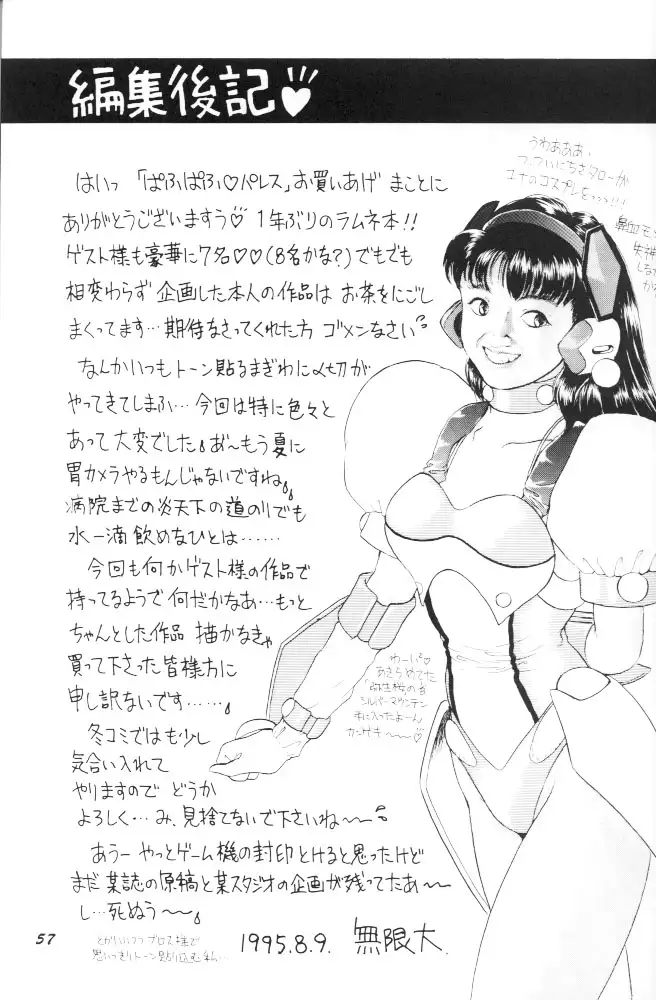 編集後記♡
はいっ 「ぱふぱふ♡パレス」お買いあげ まことに
ありがとうございますう♡ 1年ぶりのラムネ本!!
ゲスト様も豪華に7名♡♡(8名かな?)でもでも
相変わらず 企画した本人の作品は お茶をにごし
まくってます…期待なさってくれた方 ゴメンなさい
なんかいつもトーン貼るまぎわに〆切が
やってきてしまふ…今回は特に色々と
あって大変でした。お~もう夏に
胃カメラやるもんじゃないですね。
病院までの炎天下の道のりでも
水一滴飲めないひとは……
今回も何かゲスト様の作品で
持ってるようで何だかなあ…もっと
ちゃんとした作品 描かなきゃ
買って下さった皆様方に
申し訳ないです……。
冬コミではも少し
気合い入れて
やりますので どうか
よろしく…み、見捨てないで下さいね~~
あうー やっとゲーム機の封印とけると思ったけど
まだ某誌の原稿と某スタジオの企画が残ってたあ~
し…死ぬう~。
1995.8.9. 無限大
うわあああ、
ユナのコスプレをっっっ!!!
わーい♡
あきらめてた
シルバーマウンテン
手に入ったよーん
カンゲキ~♡
思いっきりトーン貼り込む私…
57